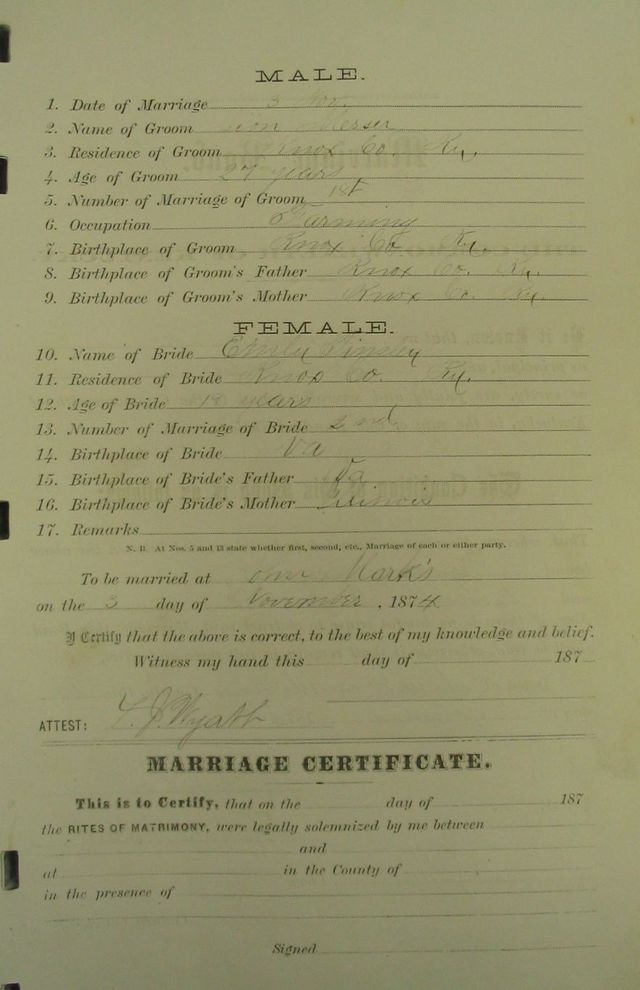 MALE.
1. Date of Marriage 3 Nov.
2. Name of Groom
3. Residence of Groom Knox Co. Ky.
4. Age of Groom 27 years
5. Number of Marriage of Groom 1st
6. Occupation Farming
7. Birthplace of Groom Knox Co. Ky.
8. Birthplace of Groom's Father Knox Co. Ky.
9. Birthplace of Groom's Mother Knox Co. Ky.
FEMALE.
10. Name of Bride Emily
11. Residence of Bride Knox Co. Ky.
12. Age of Bride years
13. Number of Marriage of Bride 2nd
14. Birthplace of Bride Va
15. Birthplace of Bride's Father Va
16. Birthplace of Bride's Mother Illinois
17. Remarks
N. B. At Nos. 5 and 13 state whether first, second, etc., Marriage of each or either party.
To be married at Mark's
on the 3 day of November, 1874
I Certify that the above is correct, to the best of my knowledge and belief.
Witness my hand this day of 187
ATTEST: Wyatt
MARRIAGE CERTIFICATE.
This is to Certify, that on the day of 187
the RITES OF MATRIMONY, were legally solemnized by me between
and
at in the County of
in the presence of
Signed